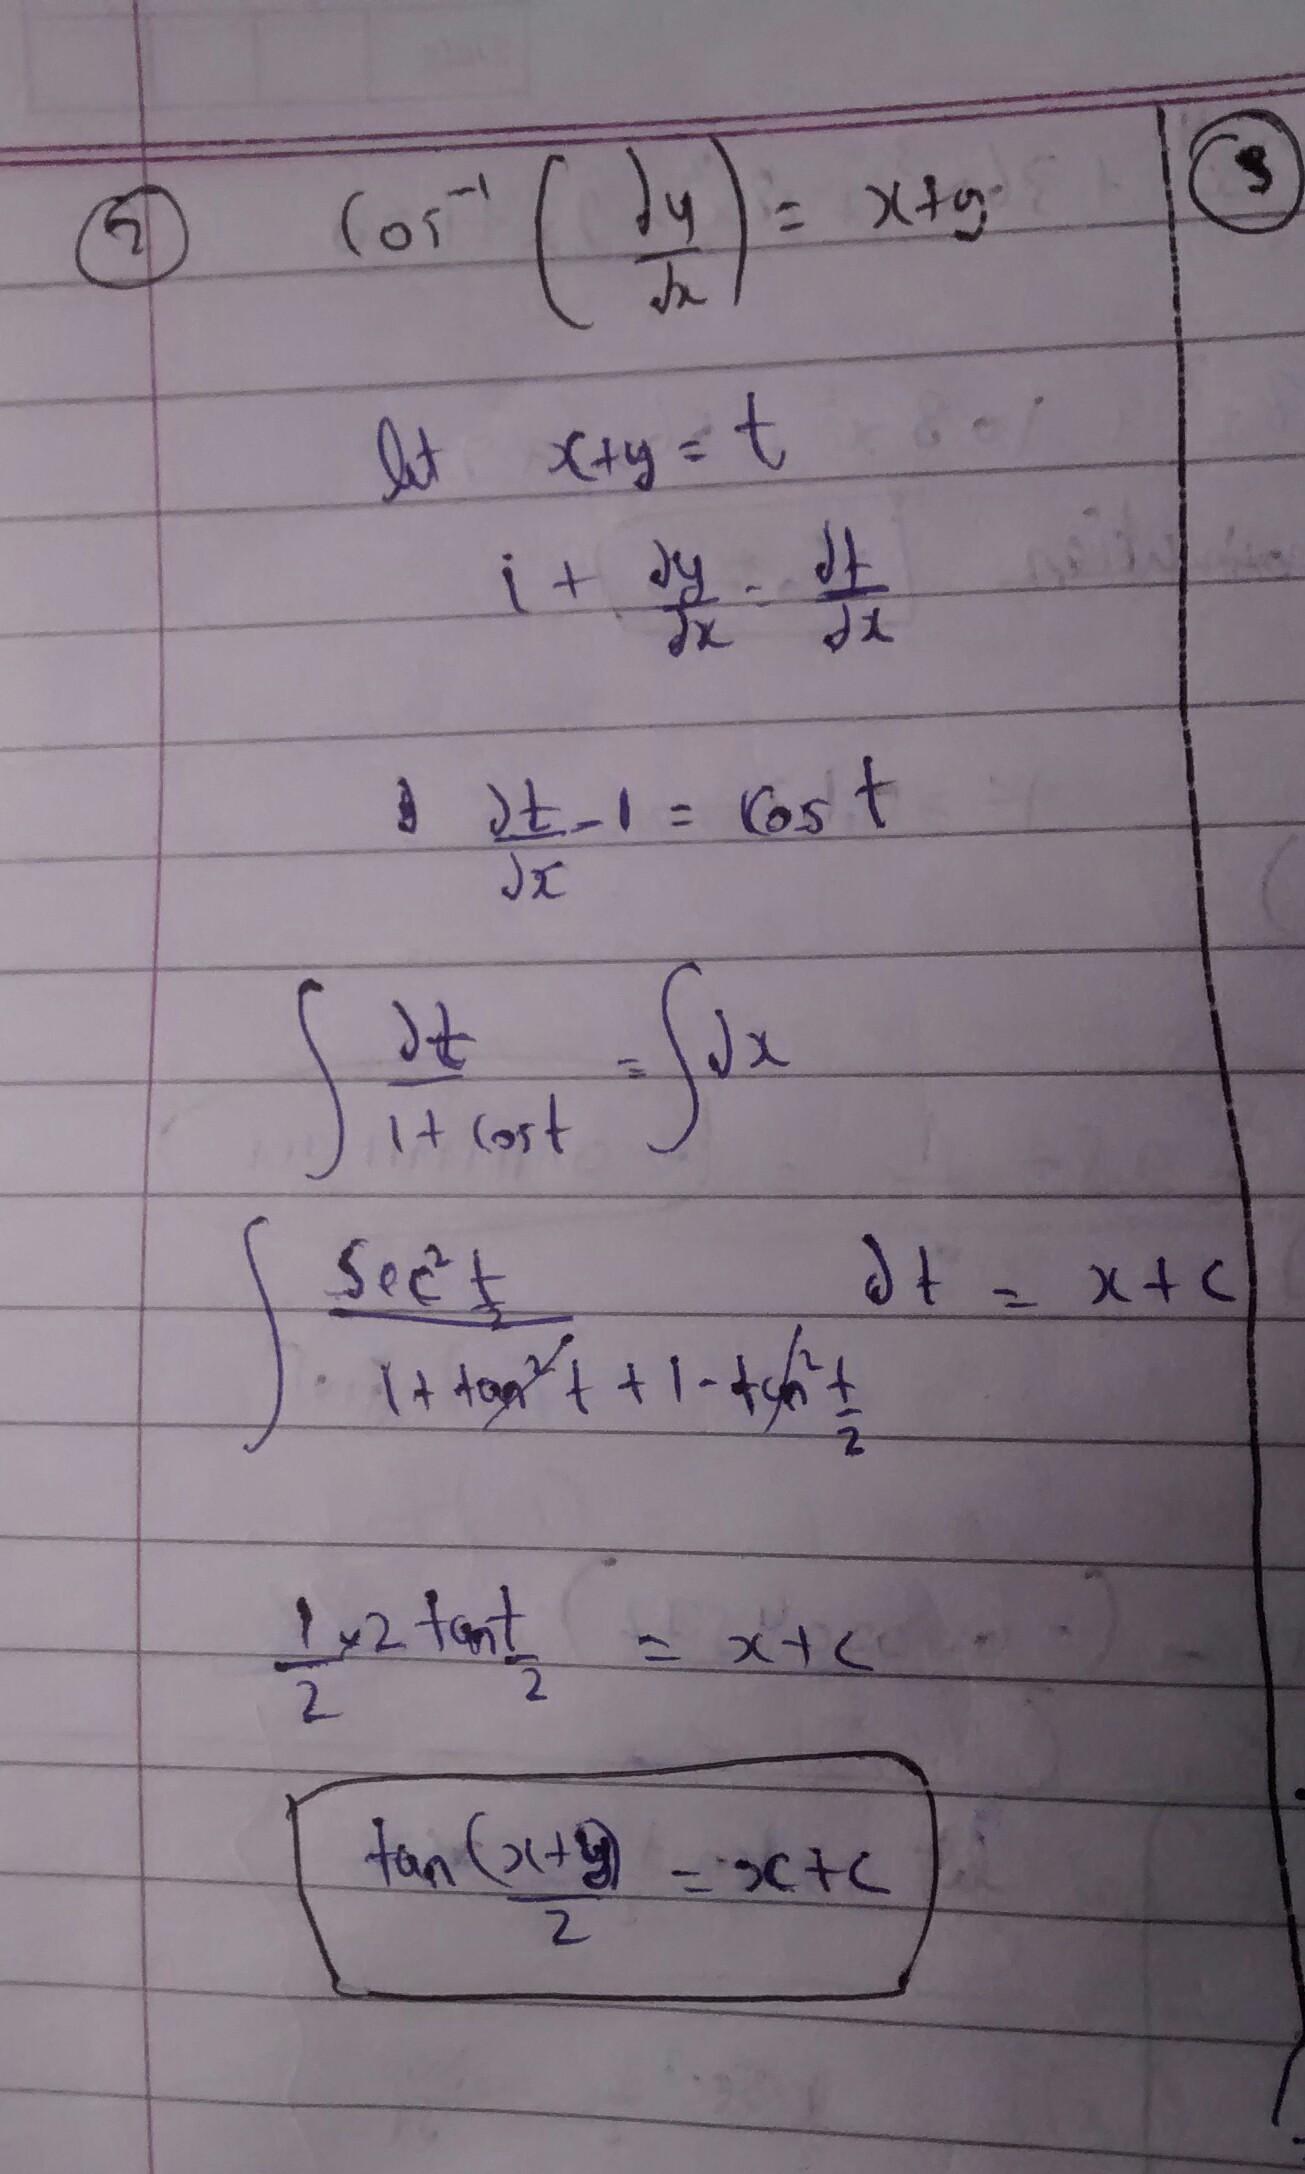 ② Cos⁻¹ (dy/dx) = x+y
③
let x+y = t
1 + dy/dx = dt/dx
dt/dx - 1 = cos t
∫ dt/(1+cost) = ∫dx
∫ Sec² t/2 / (1+tan² t + 1-tan² t/2) dt = x+c
1/2 × 2 tan t/2 = x+c
tan (x+y)/2 = x+c